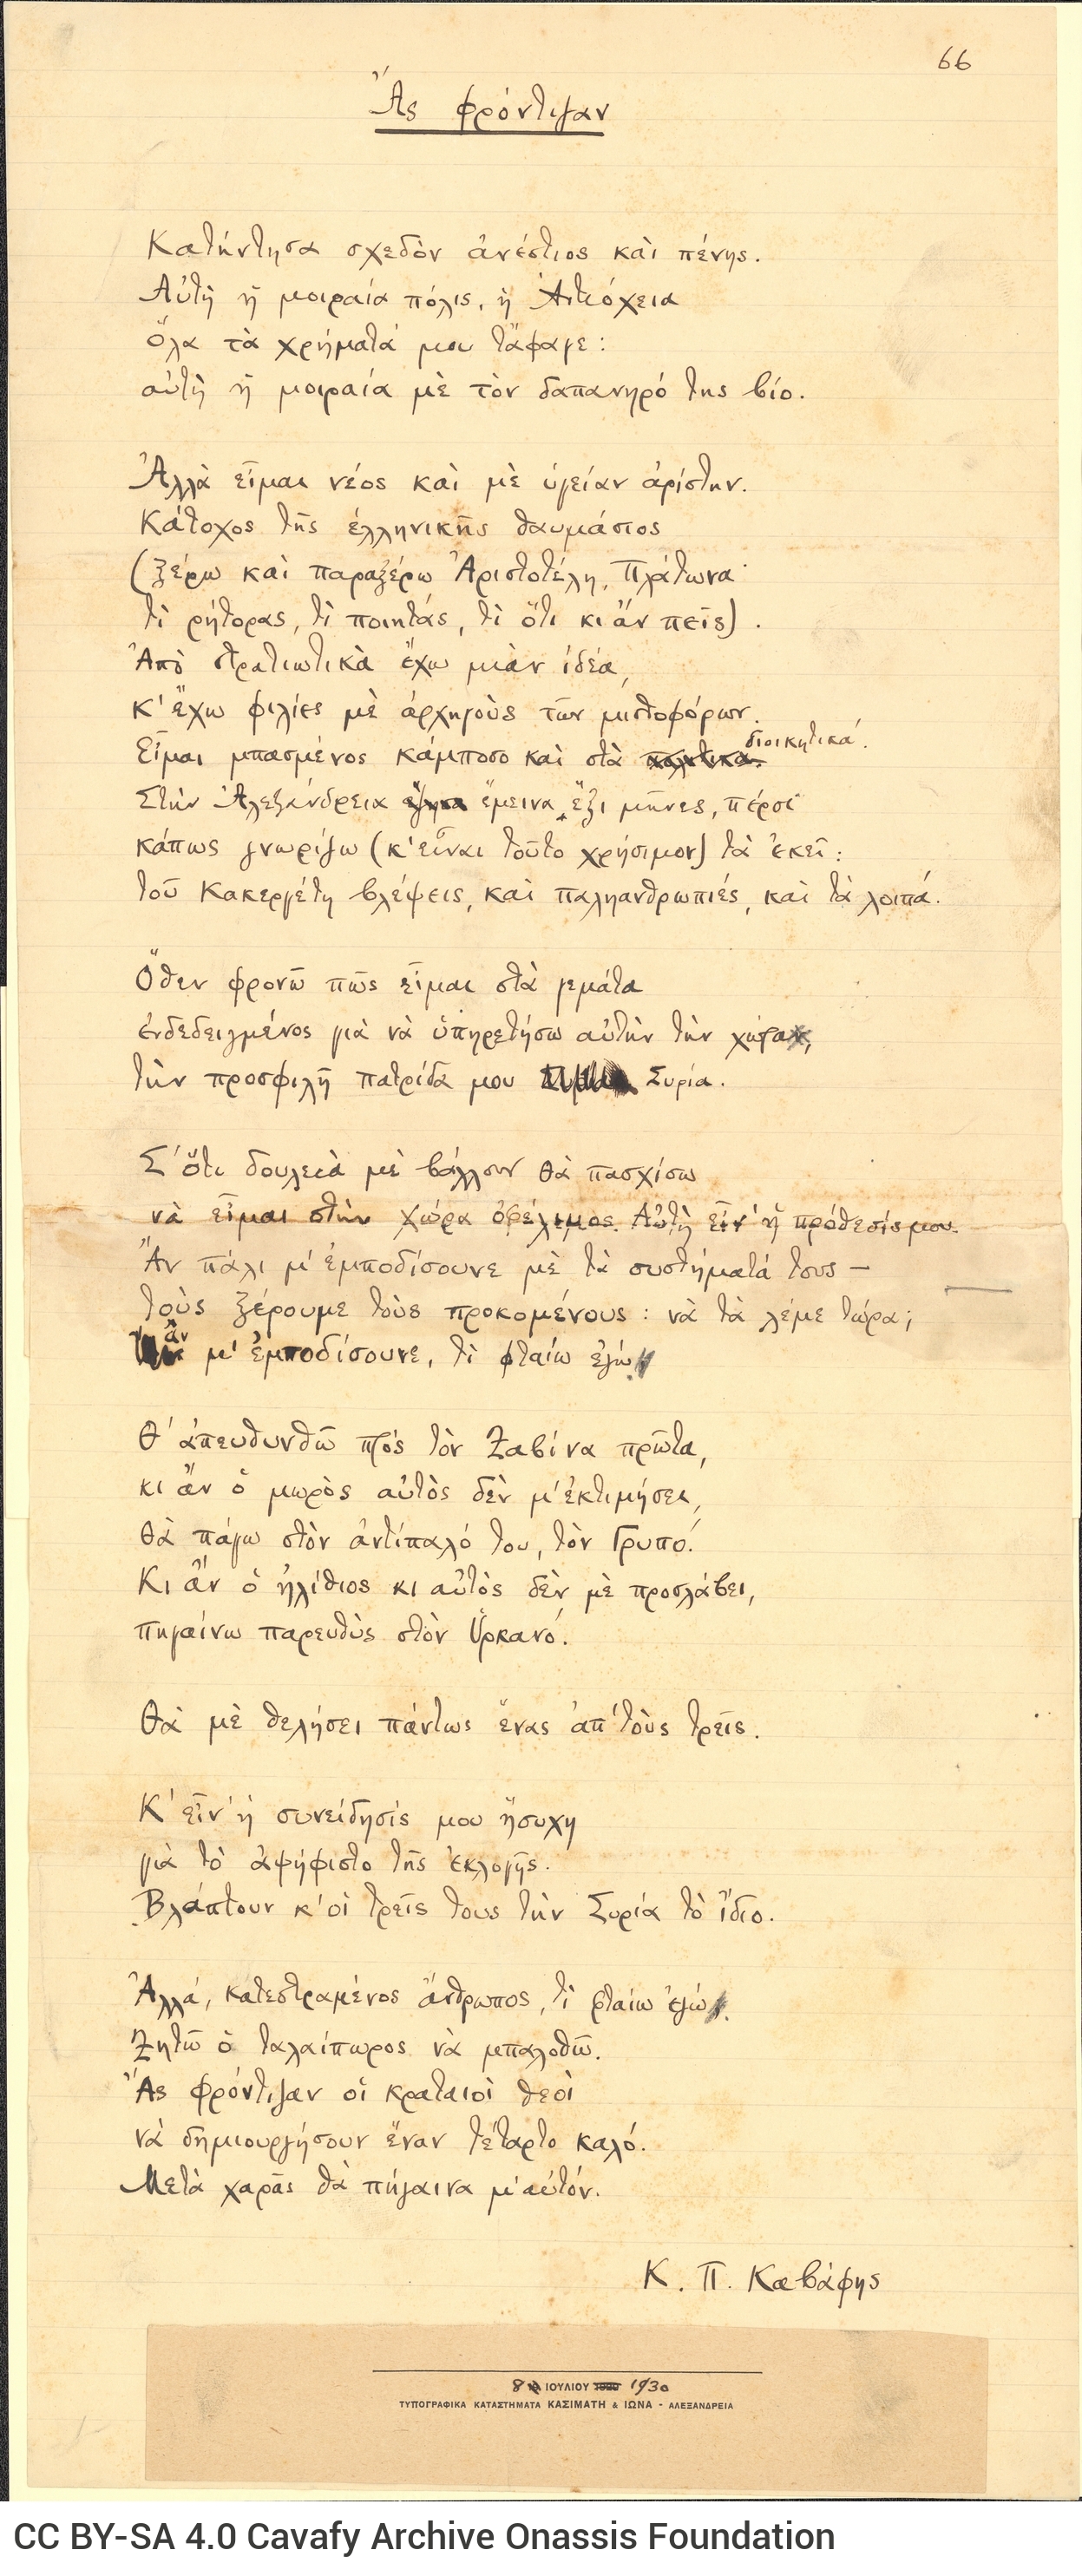 66
Ἂς φρόντιζαν
Κατήντησα σχεδὸν ἀνέστιος καὶ πένης.
Αὐτὴ ἡ μοιραία πόλις, ἡ Ἀντιόχεια
ὅλα τὰ χρήματά μου τἄφαγε:
αὐτὴ ἡ μοιραία μὲ τὸν δαπανηρό της βίο.
Ἀλλὰ εἶμαι νέος καὶ μὲ ὑγείαν ἀρίστην.
Κάτοχος τῆς ἑλληνικῆς θαυμάσιος
(ξέρω καὶ παραξέρω Ἀριστοτέλη, Πλάτωνα·
τί ρήτορας, τί ποιητάς, τί ὅ,τι κι ἂν πεῖς).
Ἀπὸ στρατιωτικὰ ἔχω μιὰν ἰδέα,
κ' ἔχω φιλίες μὲ ἀρχηγοὺς τῶν μισθοφόρων.
Εἶμαι μπασμένος κάμποσο καὶ στὰ διοικητικά.
Στὴν Ἀλεξάνδρεια ἔμεινα ἕξι μῆνες, πέρσι·
κάπως γνωρίζω (κ' εἶναι τοῦτο χρήσιμον) τὰ ἐκεῖ:
τοῦ Κακεργέτη βλέψεις, καὶ παληανθρωπιές, καὶ τὰ λοιπά.
Ὅθεν φρονῶ πῶς εἶμαι στὰ γεμάτα
ἐνδεδειγμένος γιὰ νὰ ὑπηρετήσω αὐτὴν τὴν χώρα,
τὴν προσφιλῆ πατρίδα μου Συρία.
Σ' ὅ,τι δουλειὰ μὲ βάλλουν θὰ πασχίσω
νὰ εἶμαι στὴν χώρα ὠφέλιμος. Αὐτὴ εἶν' ἡ πρόθεσίς μου.
Ἂν πάλι μ' ἐμποδίσουνε μὲ τὰ συστήματά τους —
τοὺς ξέρουμε τοὺς προκομένους: νὰ τὰ λέμε τώρα;
ἂν μ' ἐμποδίσουνε, τί φταίω ἐγώ.
Θ' ἀπευθυνθῶ πρὸς τὸν Ζαβίνα πρῶτα,
κι ἂν ὁ μωρὸς αὐτὸς δὲν μ' ἐκτιμήσει,
θὰ πάγω στὸν ἀντίπαλό του, τὸν Γρυπό.
Κι ἂν ὁ ἠλίθιος κι αὐτὸς δὲν μὲ προσλάβει,
πηγαίνω παρευθὺς στὸν Ὑρκανό.
Θὰ μὲ θελήσει πάντως ἕνας ἀπ' τοὺς τρεῖς.
Κ' εἶν' ἡ συνείδησίς μου ἥσυχη
γιὰ τὸ ἀψήφιστο τῆς ἐκλογῆς.
Βλάπτουν κ' οἱ τρεῖς τους τὴν Συρία τὸ ἴδιο.
Ἀλλά, κατεστραμένος ἄνθρωπος, τί φταίω ἐγώ.
Ζητῶ ὁ ταλαίπωρος νὰ μπαλοθῶ.
Ἂς φρόντιζαν οἱ κραταιοὶ θεοὶ
νὰ δημιουργήσουν ἕναν τέταρτο καλό.
Μετὰ χαρᾶς θὰ πήγαινα μ' αὐτόν.
Κ. Π. Καβάφης
8 ΙΟΥΛΙΟΥ 1930
ΤΥΠΟΓΡΑΦΙΚΑ ΚΑΤΑΣΤΗΜΑΤΑ ΚΑΣΙΜΑΤΗ & ΙΩΝΑ - ΑΛΕΞΑΝΔΡΕΙΑ
CC BY-SA 4.0 Cavafy Archive Onassis Foundation